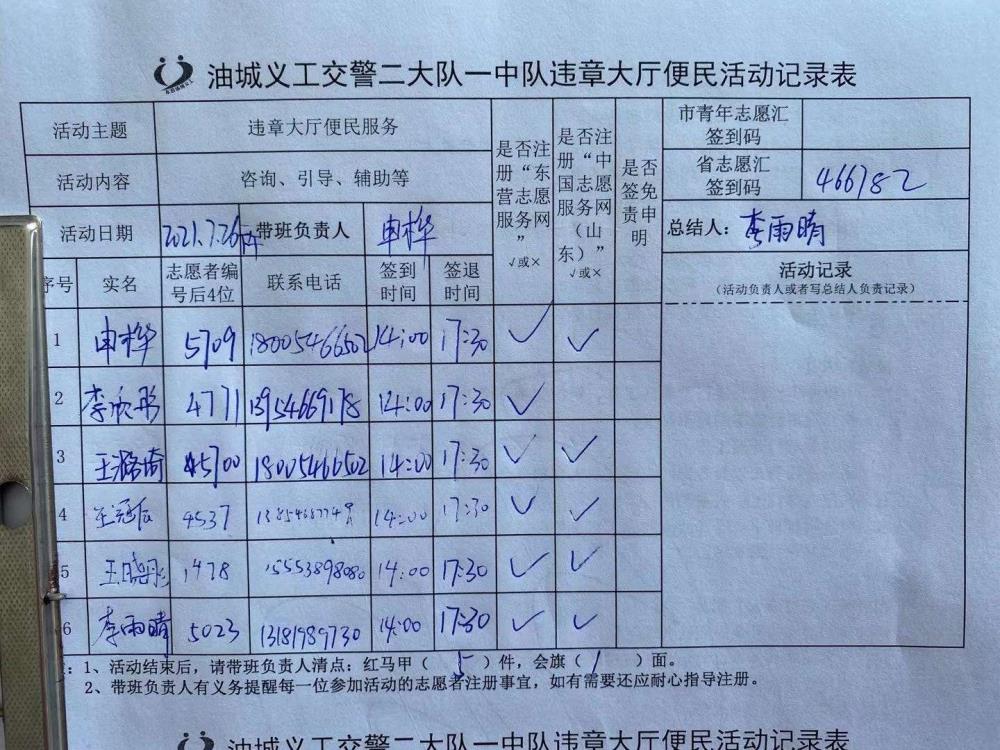 油城义工交警二大队一中队违章大厅便民活动记录表
活动主题 违章大厅便民服务
活动内容 咨询、引导、辅助等
活动日期 2021.7.26 带班负责人 申桦
是否注册“东营志愿服务网” √或×
是否注册“中国志愿服务网（山东）” √或×
是否签免责申明
市青年志愿汇签到码
省志愿汇签到码 466782
总结人：李雨晴
活动记录
（活动负责人或者写总结人负责记录）
序号 实名 志愿者编号后4位 联系电话 签到时间 签退时间
1 申桦 5709 18005466502 14:00 17:30 √ √
2 李欣彤 4771 13954669178 14:00 17:30 √
3 王潞琦 4570 18005466502 14:00 17:30 √ √
4 4537 14:00 17:30 √ √
5 王晓彤 1478 15553898080 14:00 17:30 √ √
6 李雨晴 5023 13181989730 14:00 17:30 √ √
：1、活动结束后，请带班负责人清点：红马甲（ 5 ）件，会旗（ 1 ）面。
2、带班负责人有义务提醒每一位参加活动的志愿者注册事宜，如有需要还应耐心指导注册。
油城义工交警二大队一中队违章大厅便民活动记录表